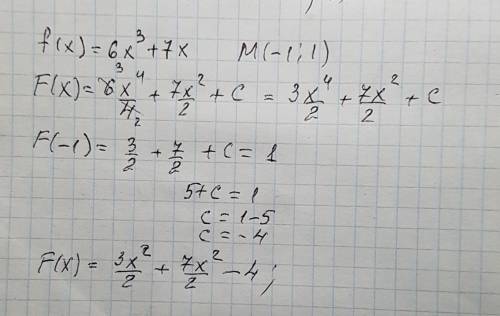 f(x) = 6x³ + 7x M(-1; 1)
F(x) = 6³x⁴/4₂ + 7x²/2 + C = 3x⁴/2 + 7x²/2 + C
F(-1) = 3/2 + 7/2 + C = 1
5 + C = 1
C = 1 - 5
C = -4
F(x) = 3x²/2 + 7x²/2 - 4;